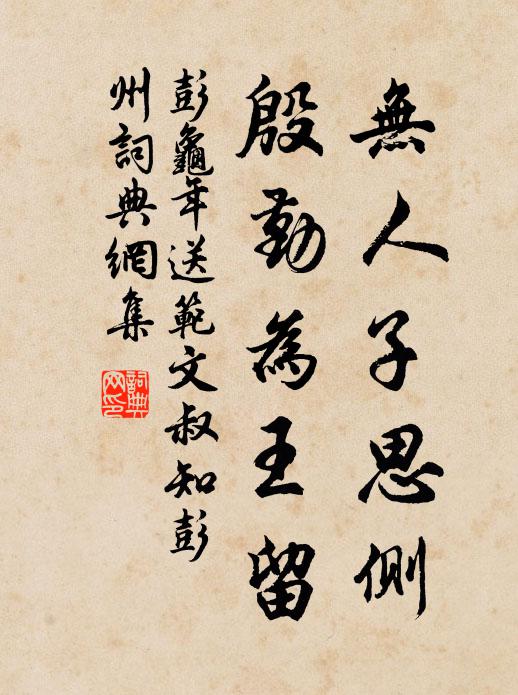 無人子思側
殷勤為王留
彭龜年送範文叔知彭
州詞典網集
詞典
网印